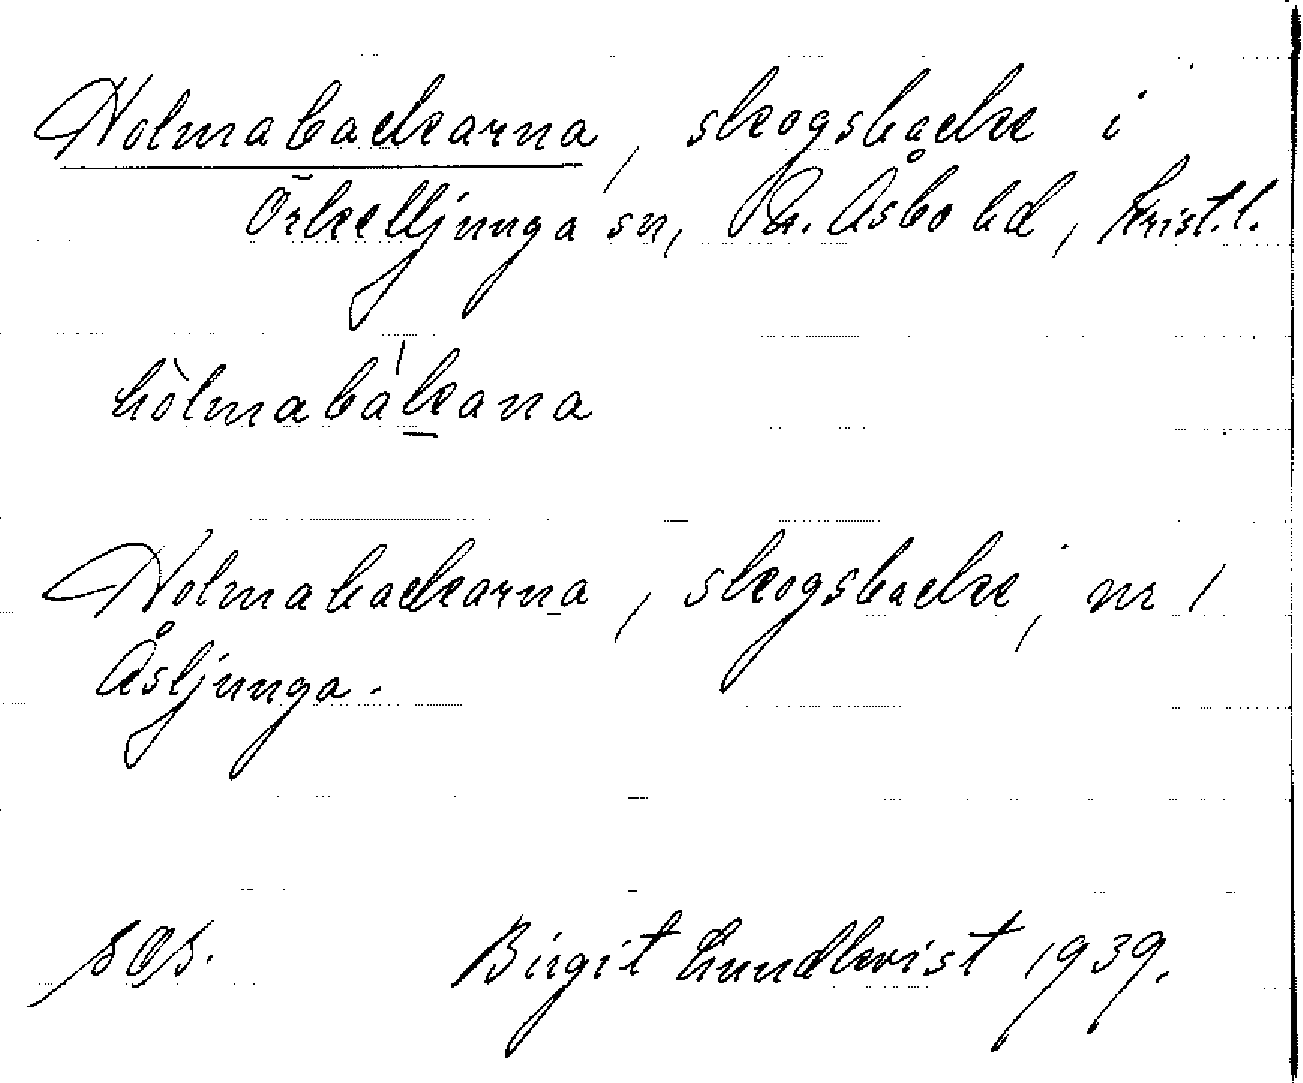 Holmabackarna, skogsbacke i
Örkelljunga sn, N. Åsbo hd, Krist. l.
hòlmabàkana
Holmabackarna, skogsbacke, nr 1
Åsljunga.
Birgit Lundkvist 1939.